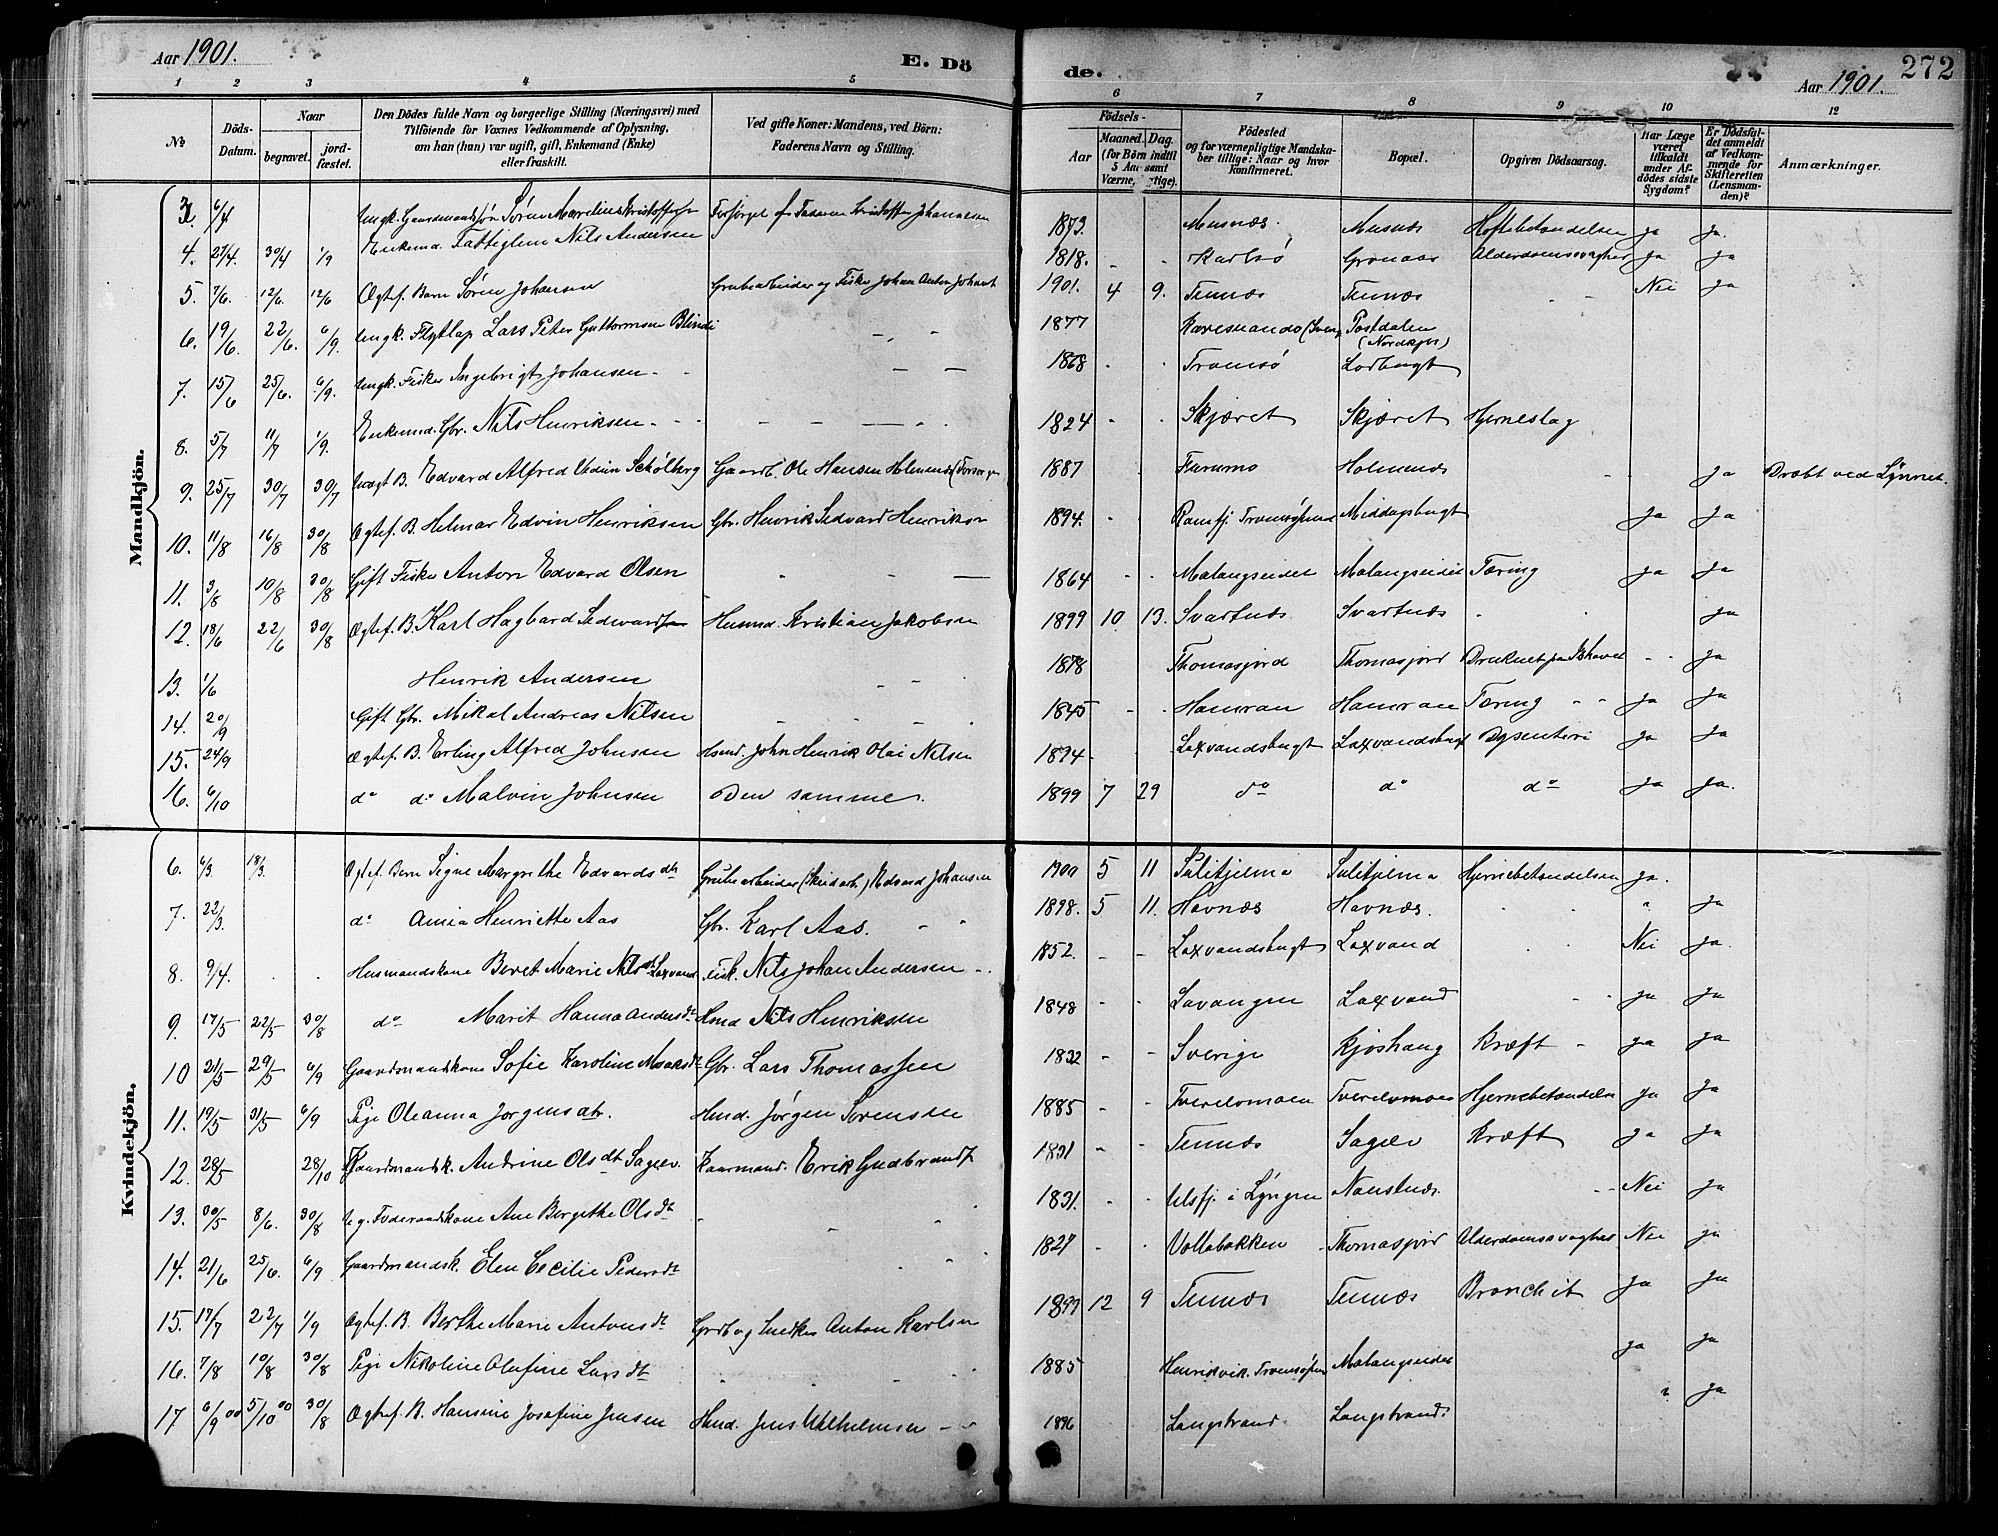 Aar 1901.
E. Dö
de.
Aar 1901.
272
1 2 3 4 5 6 7 8 9 10 12
№
Döds-Datum.
Naar
begravet.
jordfæstet.
Den Dödes fulde Navn og borgerlige Stilling (Næringsvei) med
Tilföiende for Voxnes Vedkommende af Oplysning,
om han (hun) var ugift, gift, Enkemand (Enke)
eller fraskilt.
Ved gifte Koner: Mandens, ved Börn:
Faderens Navn og Stilling.
Födsels-
Aar
Maaned. Dag.
(for Börn indtil
5 Aar samt
Værnepligtige).
Födested
og for værnepligtige Mandskaber tillige: Naar og hvor
Konfirmeret.
Bopæl.
Opgiven Dödsaarsag.
Har Læge
været
tilkaldt
under Afdödes sidste
Sygdom?
Er Dödsfaldet anmeldt
af Vedkommende for
Skifteretten
(Lensmanden)?
Anmærkninger.
Mandkjön.
3 6/4 Ungk. Gaardmandssøn Søren Marelius Kristoffersen Forsørget af Faderen Kristoffer Johannesen 1873. Musnæs. Musnæs Hoftebetændelse ja ja.
4. 27/4. 30/4 1/9 Enkemd. Fattiglem Nils Andersen 1818. - - Karlsø Grønaas Alderdomssvaghed ja ja
5. 7/6. 12/6. 12/6 Ægtef. Barn Søren Johansen Grubearbeider og Fisker Johan Anton Johans 1901. 4 9. Tennæs Tennæs Nei ja
6. 19/6. 22/6. 6/9. Ungk. Flytlap Lars Peter Guttormsen Blindi 1877 Karesuando (Sverig Postdalen (Nordkjos)
7. 15/6 25/6. 6/9. Ungk. Fisker Ingebrigt Johansen 1868 Tromsø Lodbugt
8. 5/7 11/7 1/9. Enkemd. Gbr. Nils Henriksen 1824 Skjæret Skjæret Hjerneslag
9. 25/7 30/7 30/7 Uægt B. Edvard Alfred Schølberg Gaardb. Ole Hansen 1887 Furumo Holmenæs ja Dræbt ved Lynnet.
10. 11/8 16/8 30/8 Ægtef. B. Helmar Edvin Henriksen Gbr. Henrik Sedvard Henriksen 1894. Ramfj. Tromsøsund Middagsbugt ja ja
11. 3/8 10/8 30/8 Gift Fisker Anton Edvard Olsen 1864 - - Malangseidet Malangseidet Tæring ja ja
12. 18/6 22/6 30/8 Ægtef. B. Karl Hagbard Sedvardsen Husmd. Kristian Jakobsen 1899 10 13. Svartnæs Svartnæs ja
13. 1/6 Henrik Andersen 1878 Thomasjord Thomasjord Druknet paa Ishavet - - ja
14. 20/9 Gift Gbr. Mikal Andreas Nilsen 1845 - - Hamran Hamran Tæring ja ja
15. 24/9 Ægtef. B. Erling Alfred Johnsen Hsmd. John Henrik Olai Nilsen 1894 Laxvandsbugt Laxvandsbugt Dysenteri ja ja
16. 6/10 do do Malvin Johnsen Den samme. 1899 7 29 do do do ja ja.
Kvindekjön.
6. 6/3 18/3. Ægtef. Barn Signe Margrethe Edvardsdtr Grubearbeider Edvard Johansen 1900 5 11 Sulitjelma Sulitjelma Hjernebetændelse ja.
7. 22/3. do Anna Henriette Aas Gbr. Karl Aas. 1898. 5 11. Havnæs Havnæs. ja
8. 9/4. Husmandskone Beret Marie Nilsdt Laxvand Fisk. Nils Johan Andersen 1852. - - Laxvandsbugt Laxvand Nei ja.
9. 17/5 22/5 30/8 do Marit Hanna Andersdt Hsmd Nils Henriksen 1848 - - Lavangen Laxvand ja ja
10 21/5 29/5 6/9 Gaardmandskone Sofie Karoline Gbr. Lars Thomassen 1832 - - Sverige Kjoshaug Kræft ja ja
11. 19/5 31/5 6/9 Pige Oleanna Jørgensdtr. Hmd. Jørgen Sørensen 1885 - - Tverelvmoen Tverelvmoen Hjernebetændelse ja ja
12. 28/5 28/10 Kaardmandsk. Andrine Olsdt Sagelv. Kaarmand. Erik Gudbrandsen 1831 - - Tennæs Sagelv Kræft ja ja
13. 30/5 8/6. 30/8 Føderaadskone Ane Bergithe Olsdt 1831. - - Ulsfj. i Lyngen Navstnæs. Nei ja
14. 21/6 25/6. 6/9 Gaardmandsk. Elen Cecilie Pedersdt 1827 - - Vollabakken Thomasjord Alderdomssvaghed Nei ja
15. 17/7 22/7 1/9 Ægtef. B. Berthe Marie Antonsdt Grdb og Snedker Anton Karlsen 1899 12 9 Tennæs Tennæs Bronchit ja ja
16. 7/8 10/8 30/8 Pige Nikoline Olufine Larsdt 1885 Henrikvik. Tromsøsun Malangseidet ja ja
17 6/9 00 5/10 00 30/8 Ægtef. B. Hansine Josefine Jensen Hmd. Jens Vilhelmsen 1896 Langstrand Langstrand. ? ja